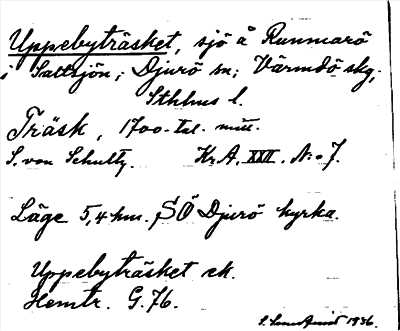 Uppebyträsket, sjö å Runmarö
i Saltsjön; Djurö sn; Värmdö skg,
Sthlms l.
Träsk, 1700-tal. mitt.
S. von Schultz. Kr.A. XXII. N:o 7.
Läge 5,4 km. SÖ Djurö kyrka.
Uppebyträsket ek.
Hemtr. G.76.
1936.